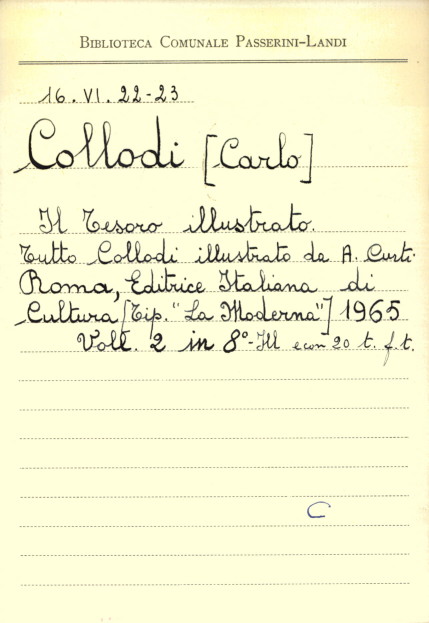 BIBLIOTECA COMUNALE PASSERINI-LANDI
16. VI. 22-23
Collodi [Carlo]
Il Tesoro illustrato.
Tutto Collodi illustrato da A. Curti.
Roma, Editrice Italiana di
Cultura [Tip. "La Moderna"] 1965
Voll. 2 in 8°-Ill e con 20 t. f.t.
C